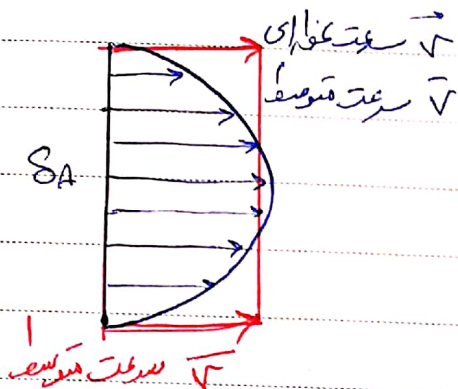 سرعت نقطه‌ای V⃗
سرعت متوسط V̅
S_A
سرعت متوسط V̅